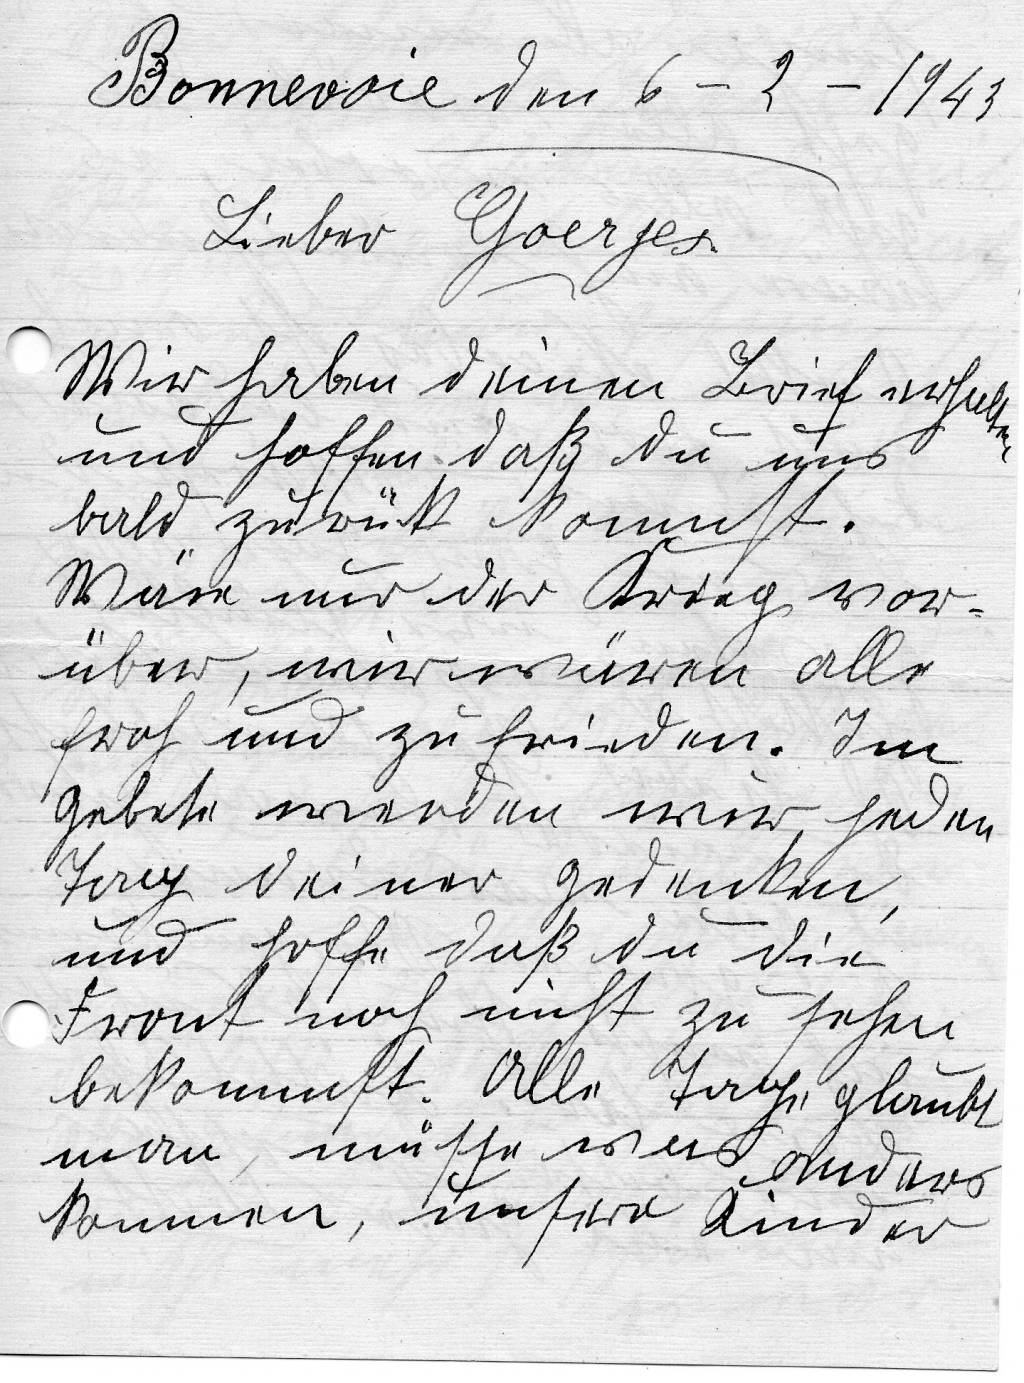 Bonnevoie den 6 - 2 - 1943
Lieber Goerges.
Wir haben deinen Brief erhalten
und hoffen daß du uns
bald zurük kommst.
Wäre nur der Krieg vor-
über, wir wären alle
froh und zufrieden. Im
Gebete werden wir jeden
Tag deiner gedenken,
und hoffe daß du die
Front noch nicht zu sehen
bekommst. Alle Tage glaubt
man, müsse was anders
kommen, unsere Kinder